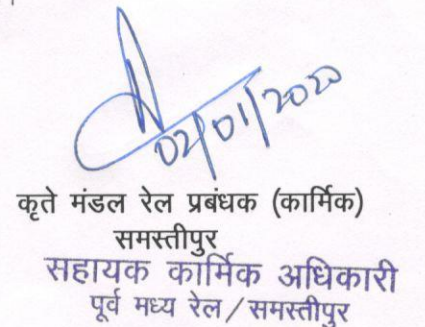 02/01/2020
कृते मंडल रेल प्रबंधक (कार्मिक)
समस्तीपुर
सहायक कार्मिक अधिकारी
पूर्व मध्य रेल/समस्तीपुर